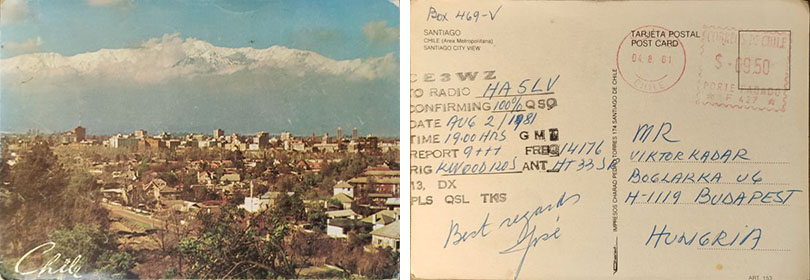 Chile
Box 469-V
SANTIAGO
CHILE (Area Metropolitana)
SANTIAGO CITY VIEW
TARJETA POSTAL
POST CARD
CORREOS DE CHILE
04.8.81
$ 09.50
CHILE
CE3WZ
TO RADIO HA5LV
CONFIRMING 100% QSO
DATE AUG 2/1981
TIME 1900 HRS GMT
REPORT 9+++ FREQ 14176
RIG KWOOD120S ANT HT33
73, DX
PLS QSL TKS
Best regards
José
MR
VIKTOR KADAR
BOGLARKA U6
H-1119 BUDAPEST
HUNGRIA
ART. 153